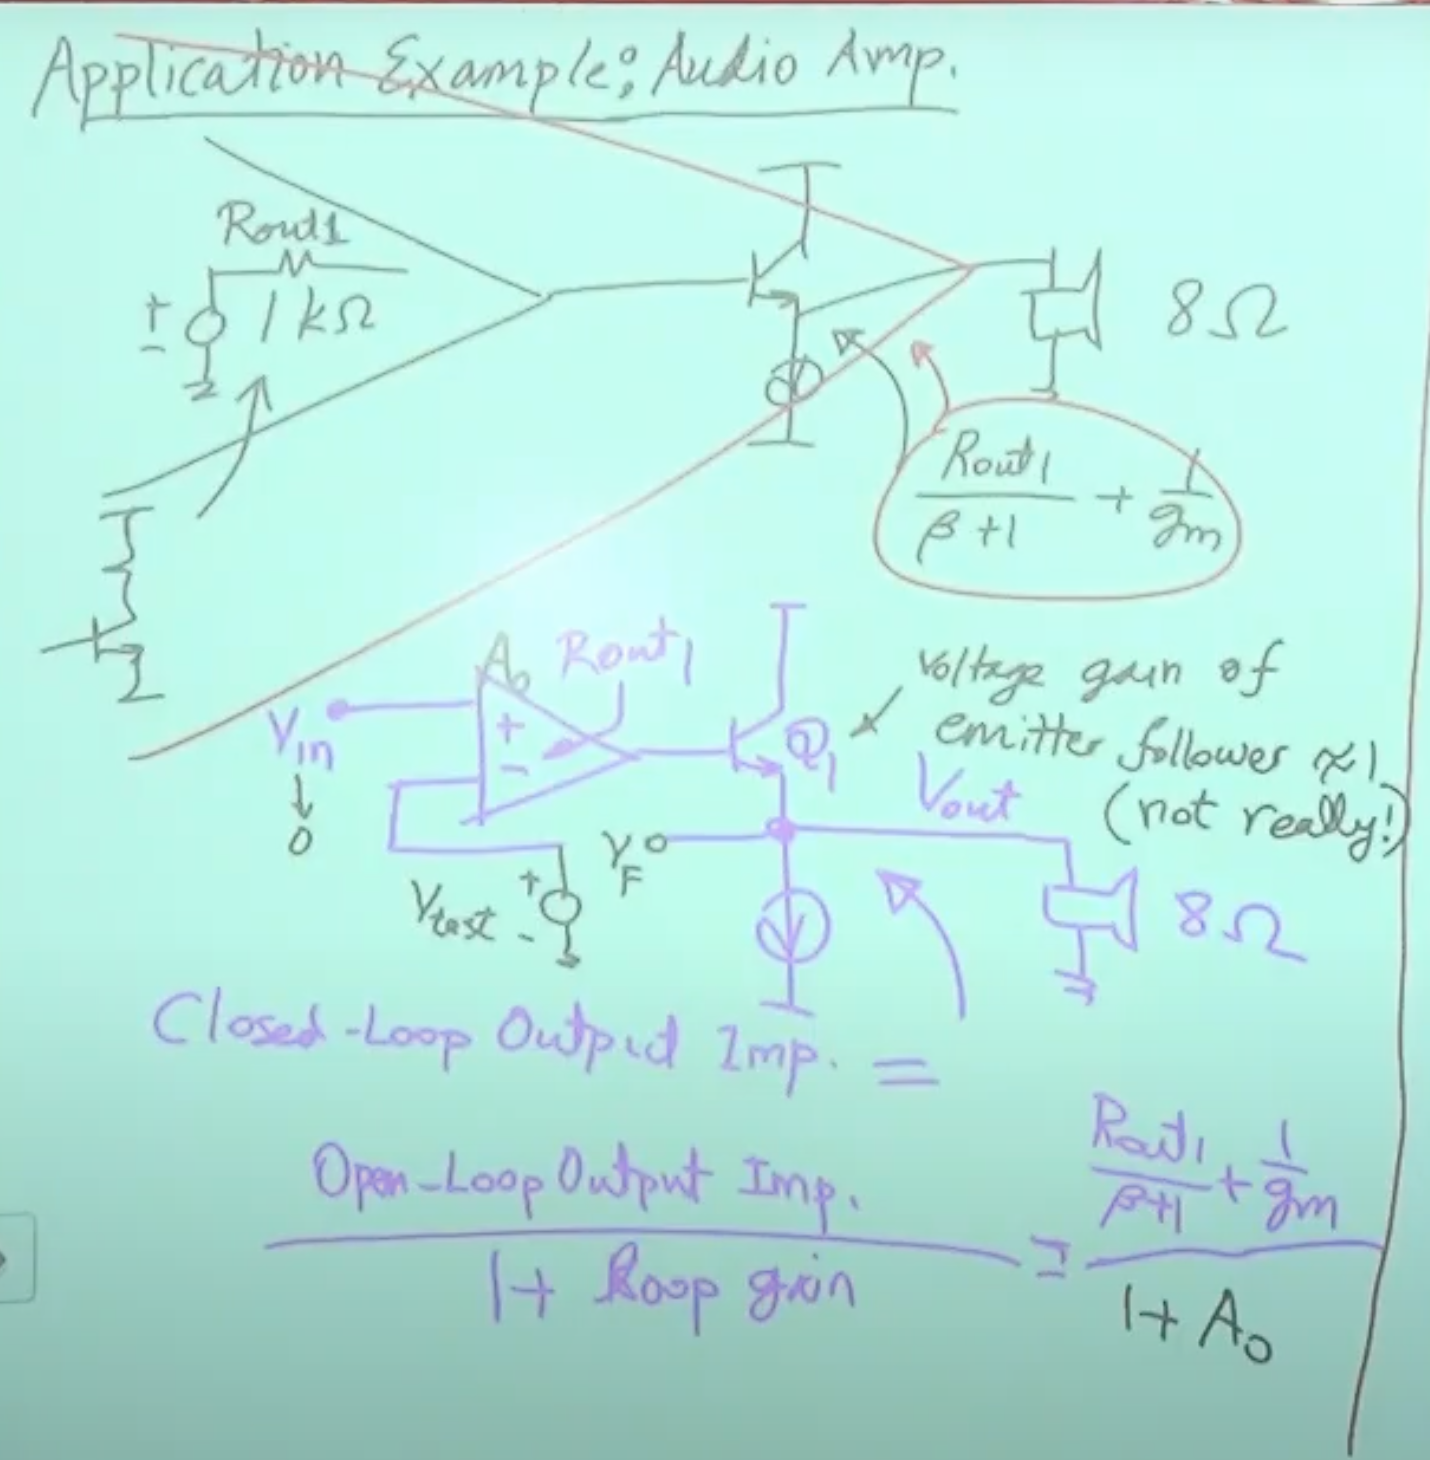 Application Example: Audio Amp.
Rout1
+
-
1 kΩ
8Ω
Rout1
β+1
+
1
gm
A0
Rout1
Vin
+
-
Q1
voltage gain of
emitter follower ≈1
(not really!)
↓
0
VF
Vout
Vtest
+
-
8Ω
Closed-Loop Output Imp. =
Open-Loop Output Imp.
1+ Loop gain
=
Rout1
β+1
+
1
gm
1+ A0